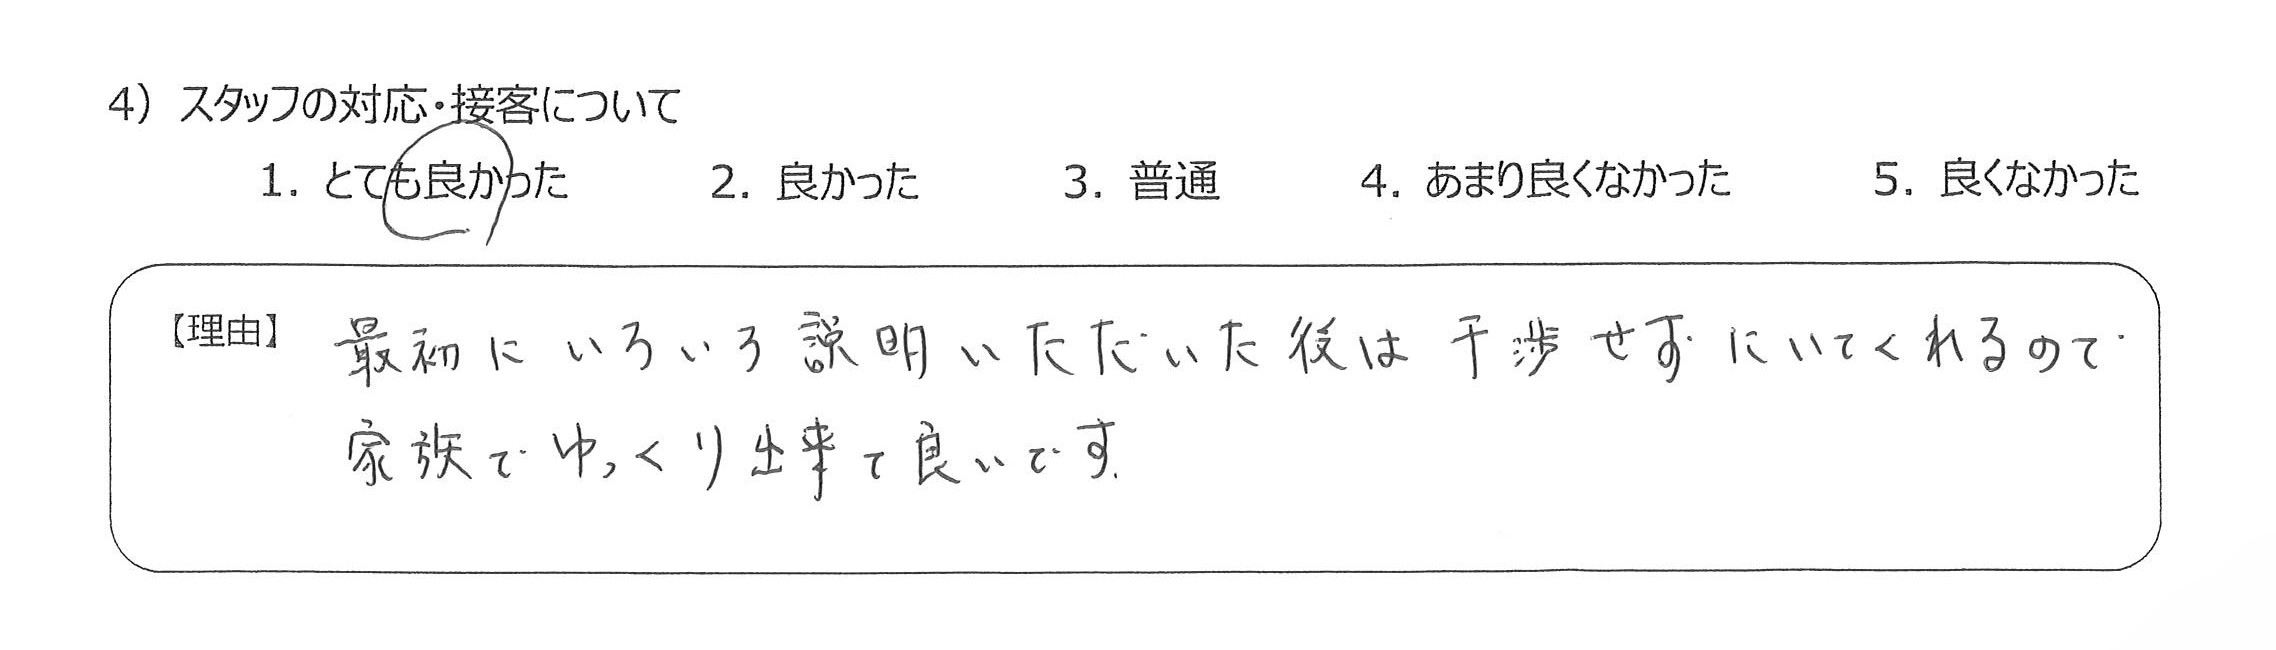 4）スタッフの対応・接客について
1. とても良かった 2. 良かった 3. 普通 4. あまり良くなかった 5. 良くなかった
【理由】 最初にいろいろ説明いただいた後は干渉せずにいてくれるので
家族でゆっくり出来て良いです.